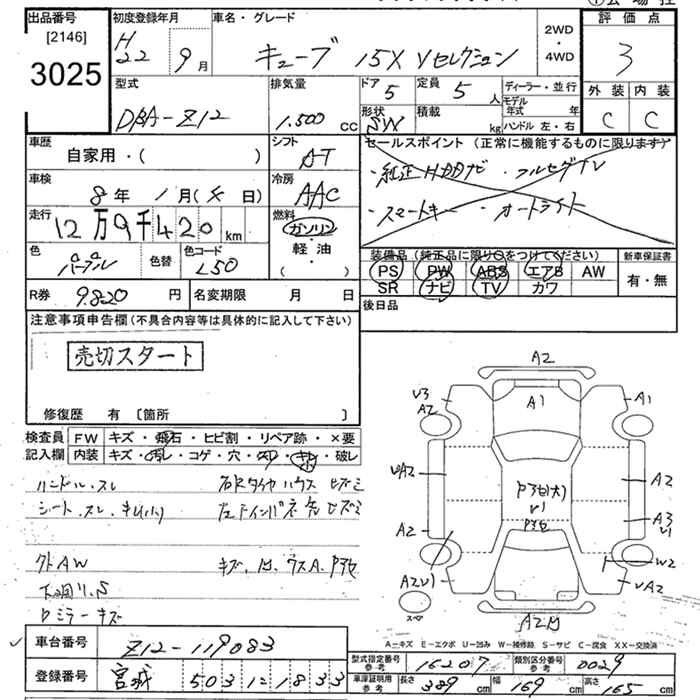 出品番号 [2146] 3025
初度登録年月 H22 9月
車名・グレード キューブ 15X Vセレクション
2WD・4WD
評価点 3
外装 C 内装 C
型式 DBA-Z12
排気量 1,500 cc
ドア 5 形状 SW
定員 5人 積載 kg
ディーラー・並行
モデル年式 年
ハンドル 左・右
車歴 自家用・( )
シフト AT
セールスポイント(正常に機能するものに限ります)
・純正HDDナビ ・フルセグTV
・スマートキー ・オートライト
車検 8年 1月( 日)
冷房 AAC
走行 12万9千420km
燃料 ガソリン・軽油・( )
色 パープル 色替 色コード L50
装備品(純正品に限り○をつけてください)
PS PW ABS エアB AW
SR ナビ TV カワ
新車保証書 有・無
R券 9,820円 名変期限 月 日
後日品
注意事項申告欄(不具合内容等は具体的に記入して下さい)
売切スタート
修復歴 有 〔箇所 〕
検査員記入欄
FW キズ・飛石・ヒビ割・リペア跡・×要
内装 キズ・汚レ・コゲ・穴・スレ・キレ・破レ
ハンドル.スレ
シート.スレ.キレ(小)
クトAW
下回りS
Dミラーキズ
A2
V3 A2
A1
A1
UA2
A2
A3 U1
P3セ(大) U1
P3セ
A2
W2
A2U1
UA2
スペア
A-キズ E-エクボ U-凹み W-補修跡 S-サビ C-腐食 XX-交換済
車台番号 Z12-119083
登録番号 宮城 503 1833
型式指定番号 参考 16207
類別区分番号 参考 0029
車庫証明用 参考 長さ 389cm 幅 169cm 高さ 165cm